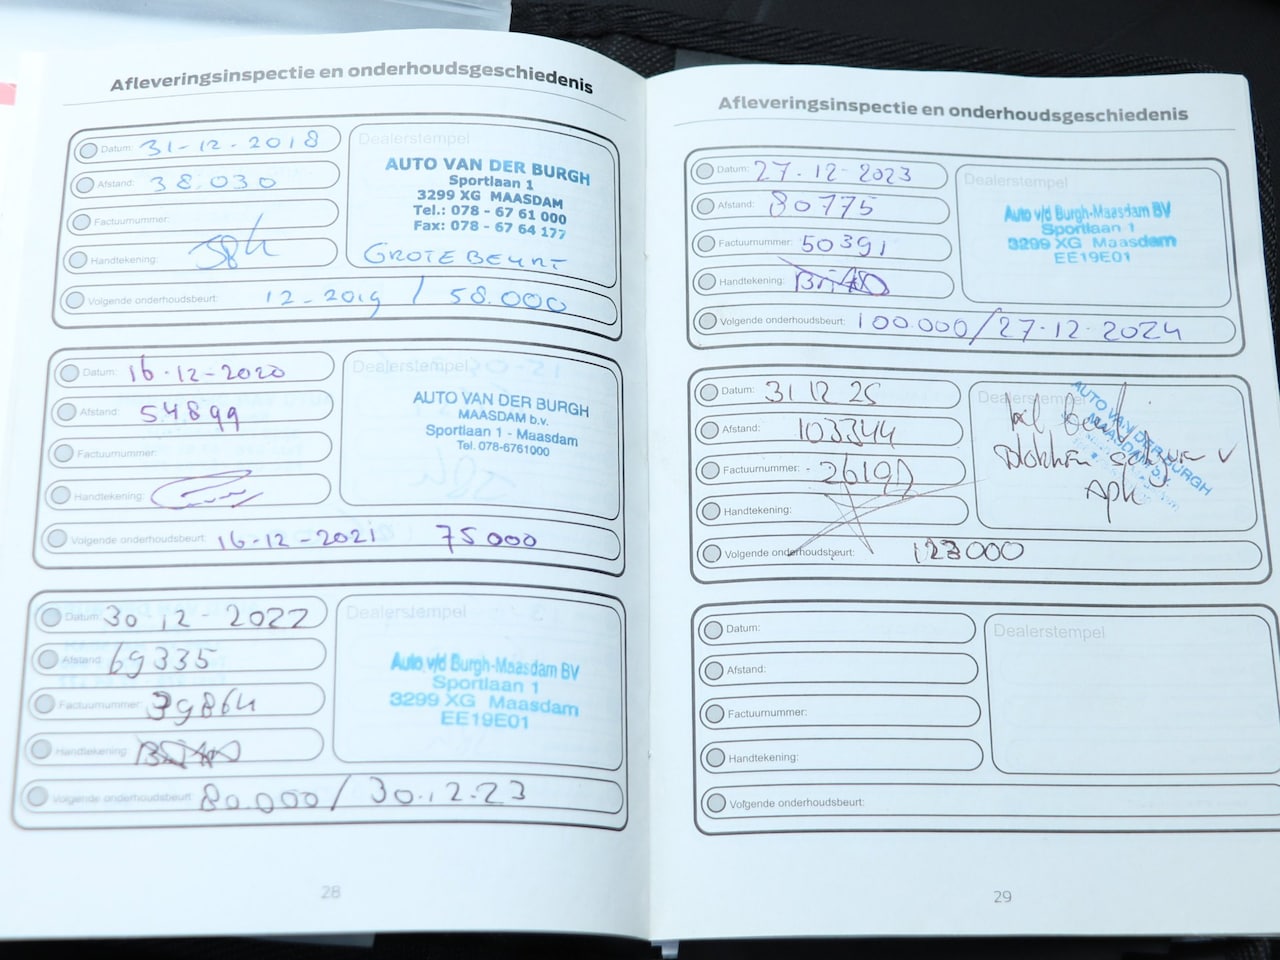 Afleveringsinspectie en onderhoudsgeschiedenis
Datum: 31-12-2018
Afstand: 38.030
Factuurnummer:
Handtekening:
Dealerstempel
AUTO VAN DER BURGH
Sportlaan 1
3299 XG MAASDAM
Tel.: 078 - 67 61 000
Fax: 078 - 67 64 177
GROTE BEURT
Volgende onderhoudsbeurt: 12-2019 / 58.000
Datum: 16-12-2020
Afstand: 54899
Factuurnummer:
Handtekening:
Dealerstempel
AUTO VAN DER BURGH
MAASDAM b.v.
Sportlaan 1 - Maasdam
Tel. 078-6761000
Volgende onderhoudsbeurt: 16-12-2021 75000
Datum: 30.12-2022
Afstand: 69335
Factuurnummer: 39864
Handtekening:
Dealerstempel
Auto v/d Burgh-Maasdam BV
Sportlaan 1
3299 XG Maasdam
EE19E01
Volgende onderhoudsbeurt: 80.000 / 30.12.23
28
Afleveringsinspectie en onderhoudsgeschiedenis
Datum: 27.12-2023
Afstand: 80775
Factuurnummer: 50391
Handtekening:
Dealerstempel
Auto v/d Burgh-Maasdam BV
Sportlaan 1
3299 XG Maasdam
EE19E01
Volgende onderhoudsbeurt: 100.000/27-12-2024
Datum: 31 12 25
Afstand: 103344
Factuurnummer:
Handtekening:
Dealerstempel
AUTO VAN DER BURGH
MAASDAM b.v.
APK
Volgende onderhoudsbeurt: 123000
Datum:
Afstand:
Factuurnummer:
Handtekening:
Dealerstempel
Volgende onderhoudsbeurt:
29